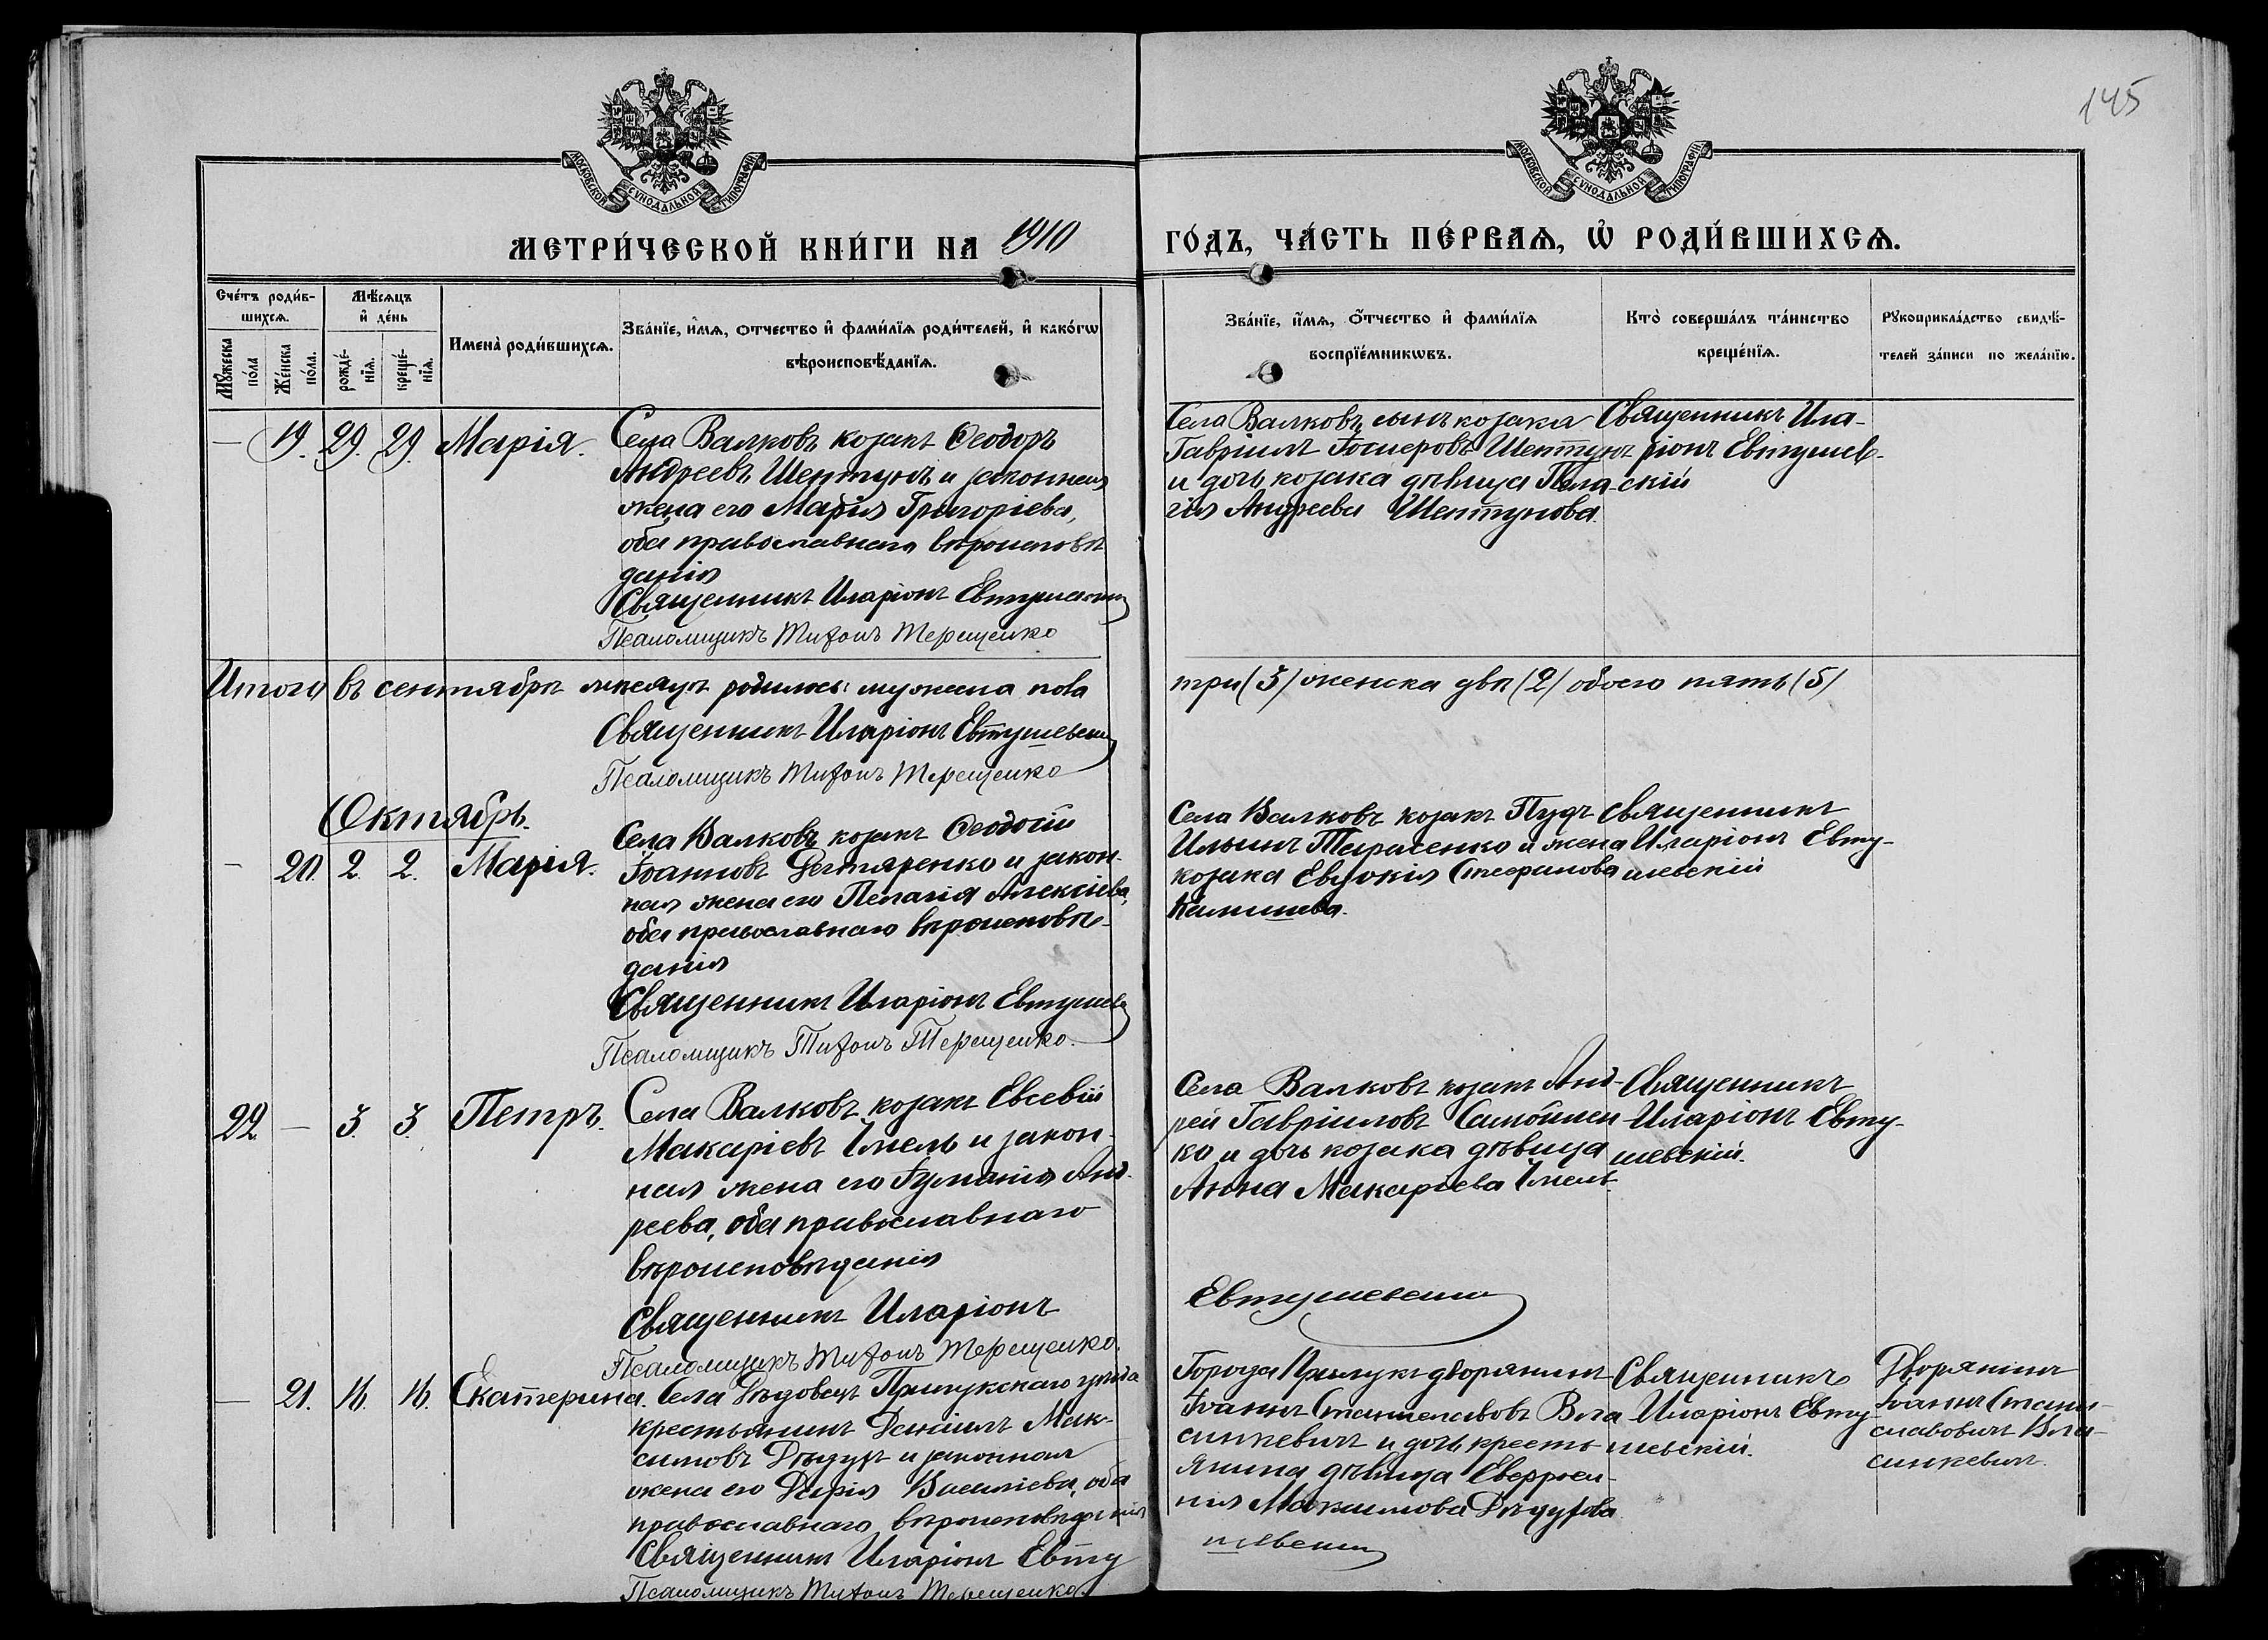 145
МОСКОВСКОЙ СѴНОДАЛЬНОЙ ТИПОГРАФІИ
МОСКОВСКОЙ СѴНОДАЛЬНОЙ ТИПОГРАФІИ
МЕТРИ́ЧЕСКОЙ КНИ́ГИ НА 1910
ГО́ДЪ, ЧА́СТЬ ПЕ́РВАѦ, Ѡ҆ РОДИ́ВШИХСѦ.
Сче́тъ роди́в-
шихсѧ.
Мꙋ́жеска по́ла
Же́нска по́ла.
Мѣ́сѧцъ
и҆ де́нь
рожде́-нїѧ.
креще́-нїѧ.
Имена̀ роди́вшихсѧ.
Зва́нїе, и҆́мѧ, ѻ҆́тчество и҆ фами́лїѧ роди́телей, и҆ како́гѡ
вѣроисповѣ́данїѧ.
Зва́нїе, и҆́мѧ, ѻ҆́тчество и҆ фами́лїѧ
воспрїе́мникѡвъ.
Кто̀ соверша́лъ та́инство
креще́нїѧ.
Рꙋкоприкла́дство свидѣ́-
телей за́писи по жела́нїю.
— 19. 29. 29. Марія.
Села Валковъ козакъ Ѳеодоръ
Андреевъ Шептунъ и законная
жена его Марія Григоріева,
оба православнаго вѣроисповѣ
данія
Священникъ Иларіонъ Евтушевскій
Псаломщикъ Тихонъ Терещенко
Села Валковъ, сынъ козака
Гавріилъ Шептунъ
и дочь козака дѣвица Пела-
гія Андреева Шептунова.
Священникъ Ила-
ріонъ Евтушев-
скій
Итого въ сентябрѣ мѣсяцѣ родилось: мужеска пола
три (3) женска двѣ (2) обоего пять (5)
Священникъ Иларіонъ Евтушевскій
Псаломщикъ Тихонъ Терещенко
Октябрь.
— 20. 2. 2. Марія.
Села Валковъ козакъ Ѳеодосій
Іоанновъ Дегтяренко и закон-
ная жена его Пелагія Алексіева,
оба православнаго вѣроисповѣ-
данія
Священникъ Иларіонъ Евтушевскій
Псаломщикъ Тихонъ Терещенко.
Села Валковъ козакъ Пудъ
Ильинъ Тарасенко и жена
козака Евдокія Стефанова
Священникъ
Иларіонъ Евту-
шевскій
22. — 3. 3. Петръ.
Села Валковъ козакъ Евсевій
Макаріевъ Імель и закон-
ная жена его Іуліанія Анд-
реева, оба православнаго
вѣроисповѣданія
Священникъ Иларіонъ
Евтушевскій
Псаломщикъ Тихонъ Терещенко.
Села Валковъ козакъ Анд-
рей Гавріиловъ Самойлен
ко и дочь козака дѣвица
Анна Макаріева Імель.
Священникъ
Иларіонъ Евту-
шевскій.
— 21. 16. 16. Екатерина.
Села Дѣдовецъ Прилукскаго уѣзда
крестьянинъ Даніилъ Мак-
симовъ Дѣдухъ и законная
жена его Дарія Василіева, оба
православнаго вѣроисповѣданія
Священникъ Иларіонъ Евту
шевскій
Псаломщикъ Тихонъ Терещенко.
Города Прилукъ дворянинъ
Іоаннъ Станиславовъ Вла
синкевичъ и дочь кресть-
янина дѣвица Евфроси-
нія Максимова Дѣдухова.
Священникъ
Иларіонъ Евту
шевскій.
Дворянинъ
Іоаннъ Стани-
славовичъ Вла-
синкевичъ.